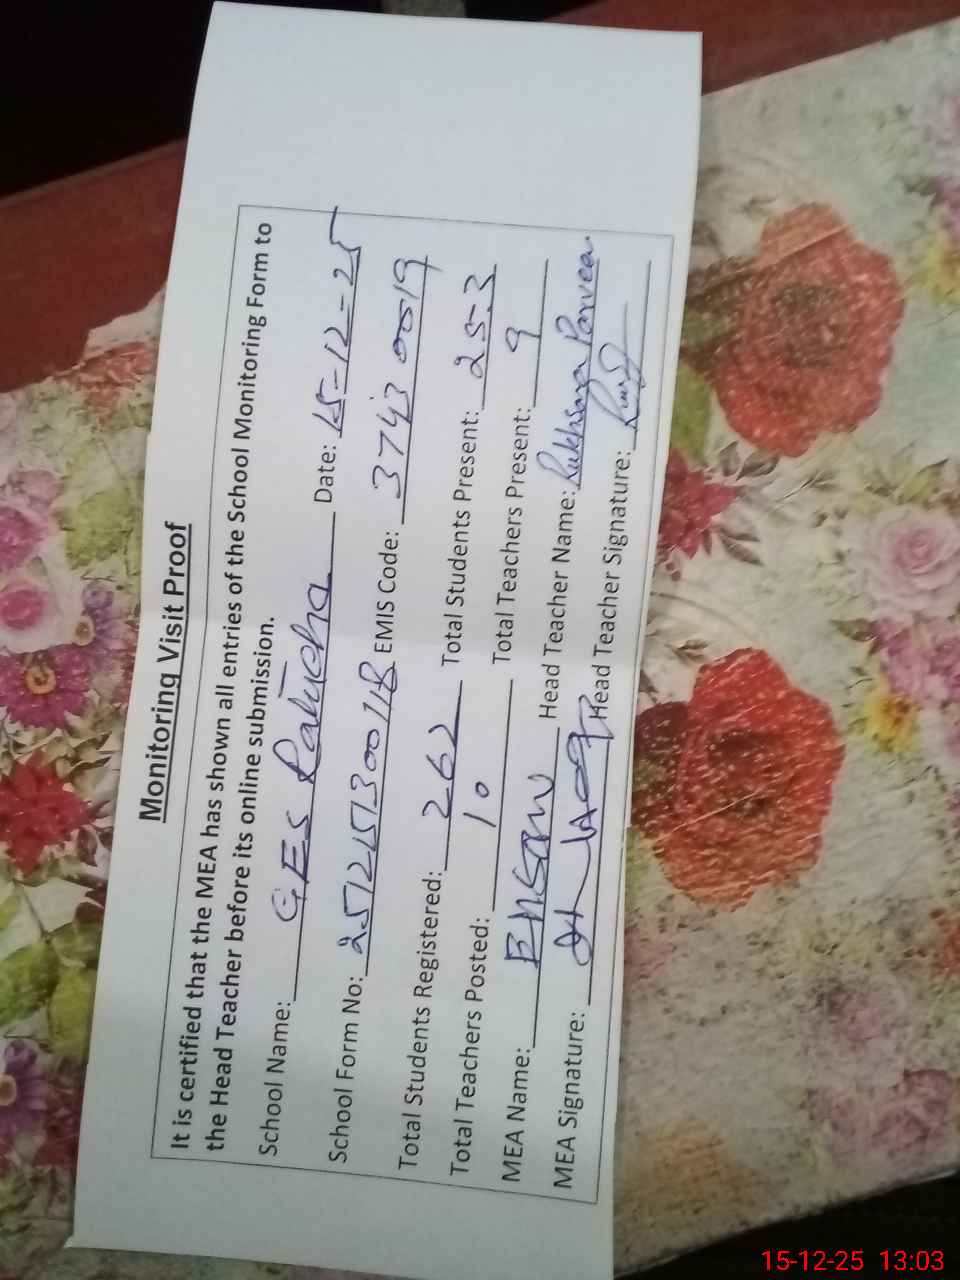 Monitoring Visit Proof
It is certified that the MEA has shown all entries of the School Monitoring Form to
the Head Teacher before its online submission.
School Name: GES Date: 15-12-25
School Form No: EMIS Code: 3743 00019
Total Students Registered: 262 Total Students Present: 253
Total Teachers Posted: 10 Total Teachers Present: 9
MEA Name: Ehsan Head Teacher Name: Rukhsana Parveen
MEA Signature: Head Teacher Signature:
15-12-25 13:03